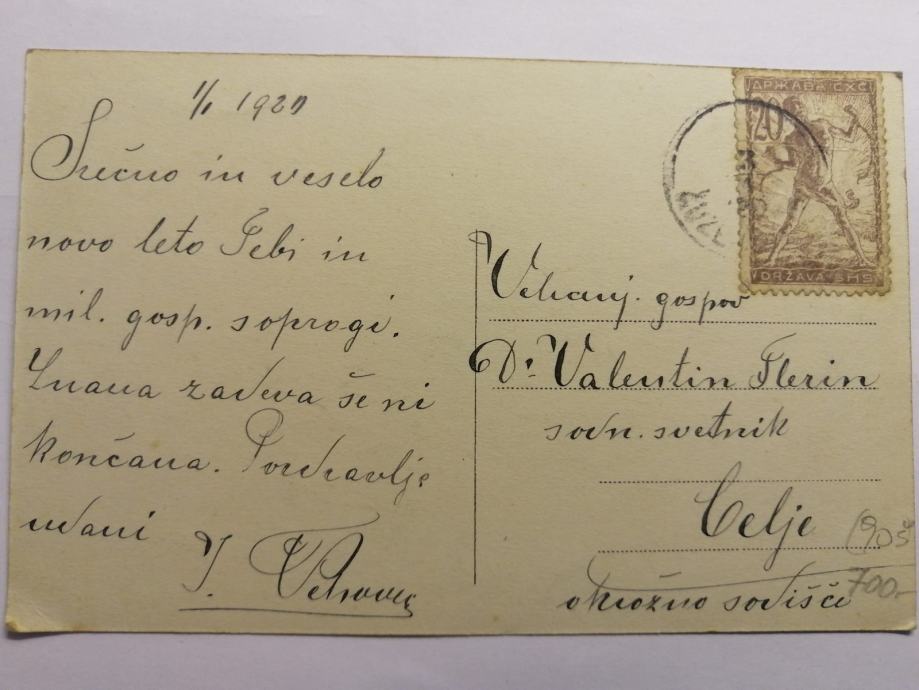 1/1 1920
Srečno in veselo
novo leto Tebi in
mil. gosp. soprogi.
Znana zadeva še ni
končana. Pozdravlja
udani
J.
ДРЖАВА СХС
20
DRŽAVA SHS
Velecenj. gospod
Dr. Valentin Flerin
sodn. svetnik
Celje
okrožno sodišče
700.-